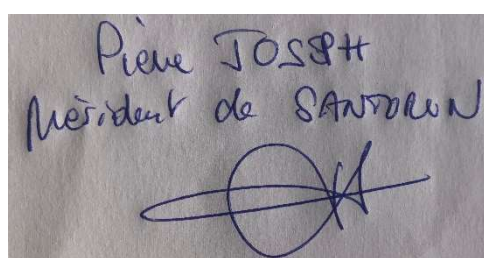 Pierre JOSEPH
Président de SANTORUN